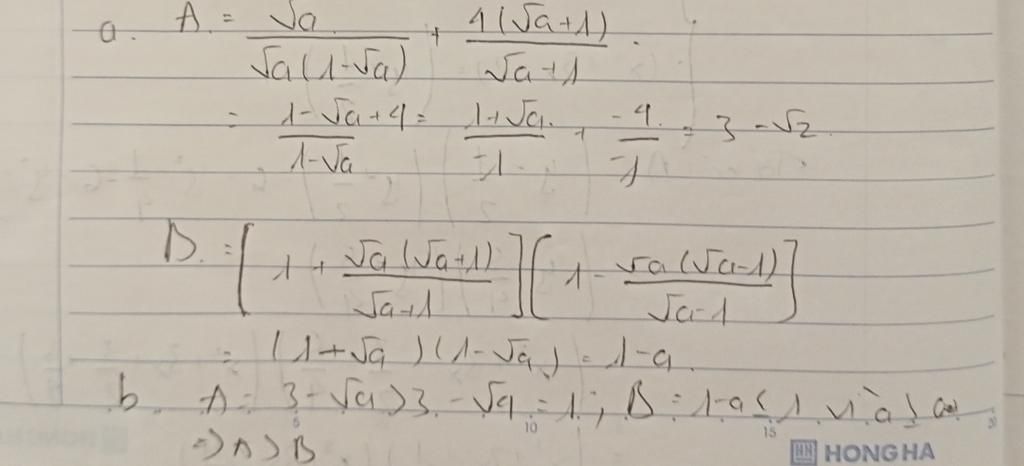 a. A = √a / √a(1-√a) + 4(√a+1) / √a+1.
= 1-√a+4 / 1-√a = 1+√a / -1 + -4 / -1 = 3-√2.
B. = [1 + √a(√a+1) / √a+1][1 - √a(√a-1) / √a-1]
= (1+√a)(1-√a) = 1-a.
b. A = 3-√a > 3-√9 = 1; B = 1-a ≤ 1 vì a ≥
=> A > B.
5 10 15
HH HONG HA